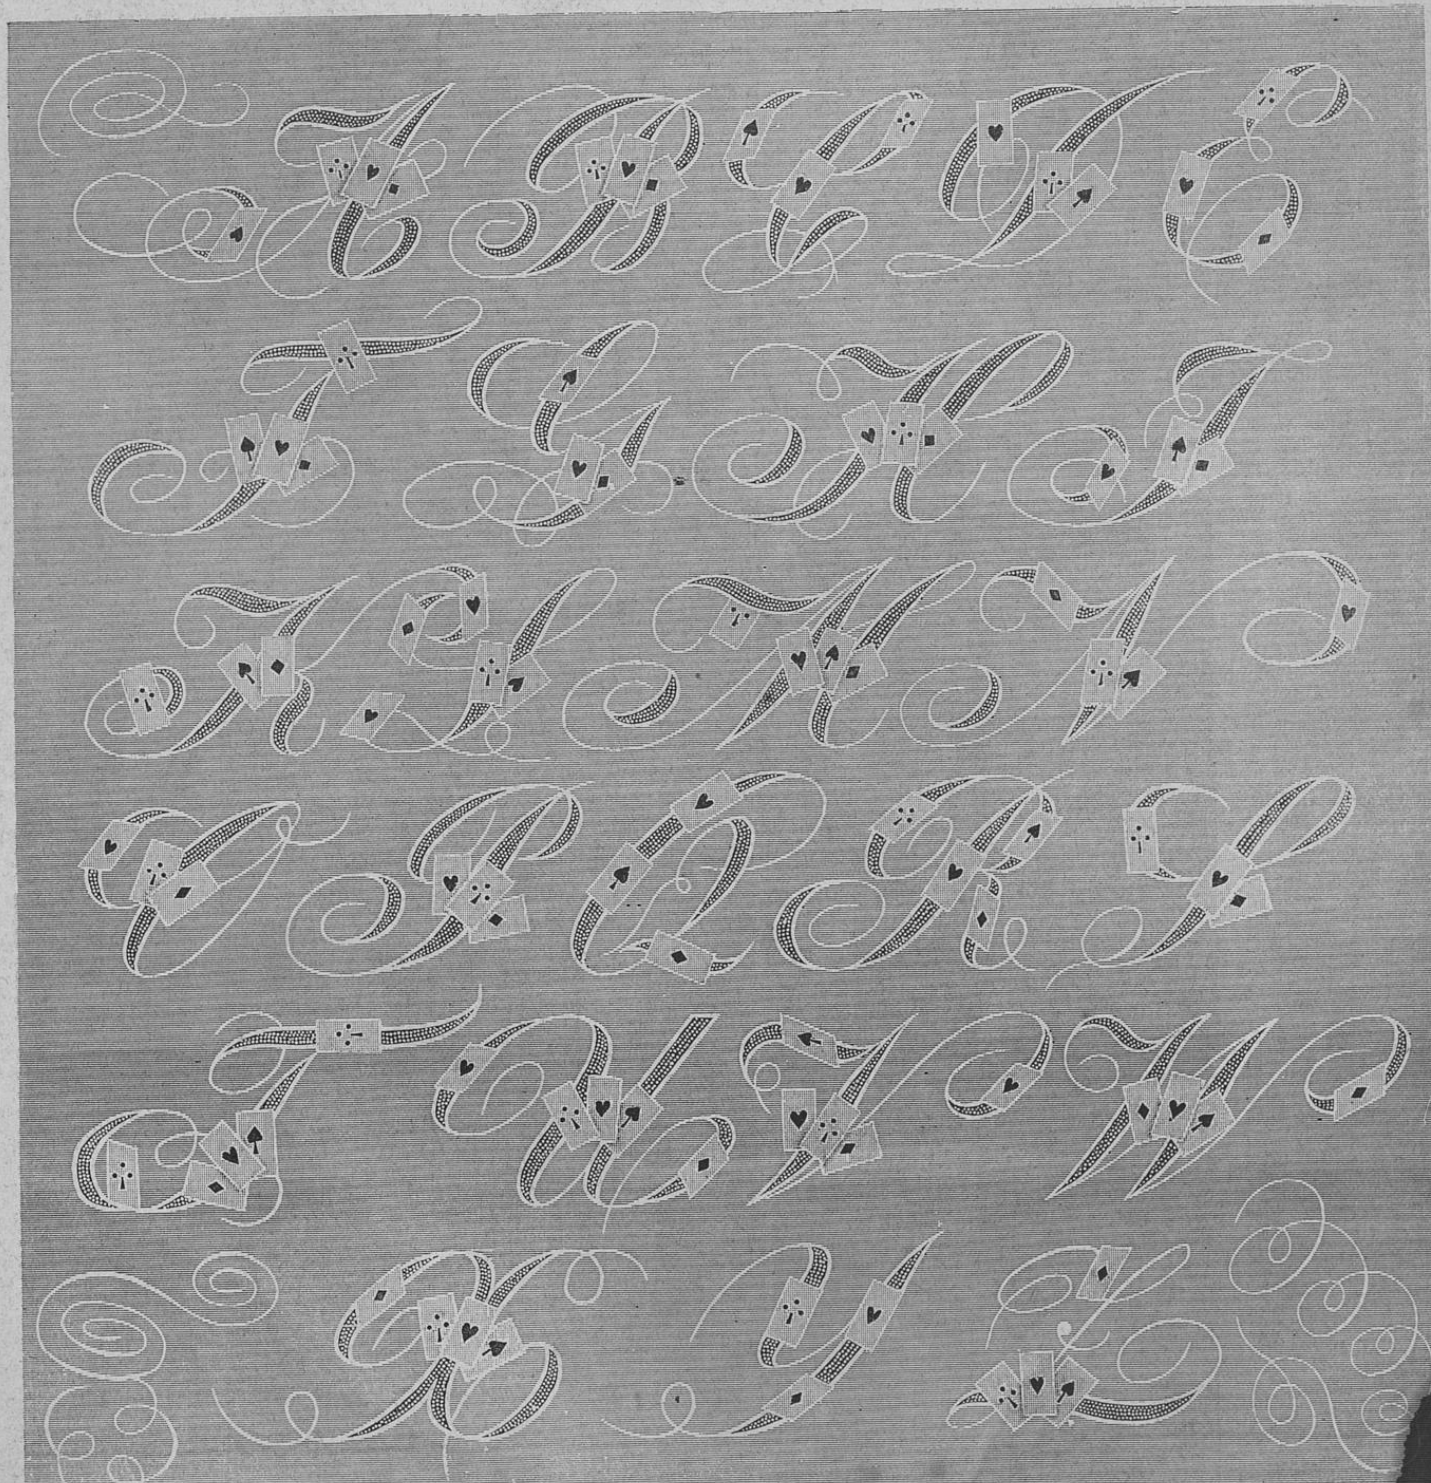 A B C D E
F G H I
K L M N
O P Q R S
T U V W
X Y Z